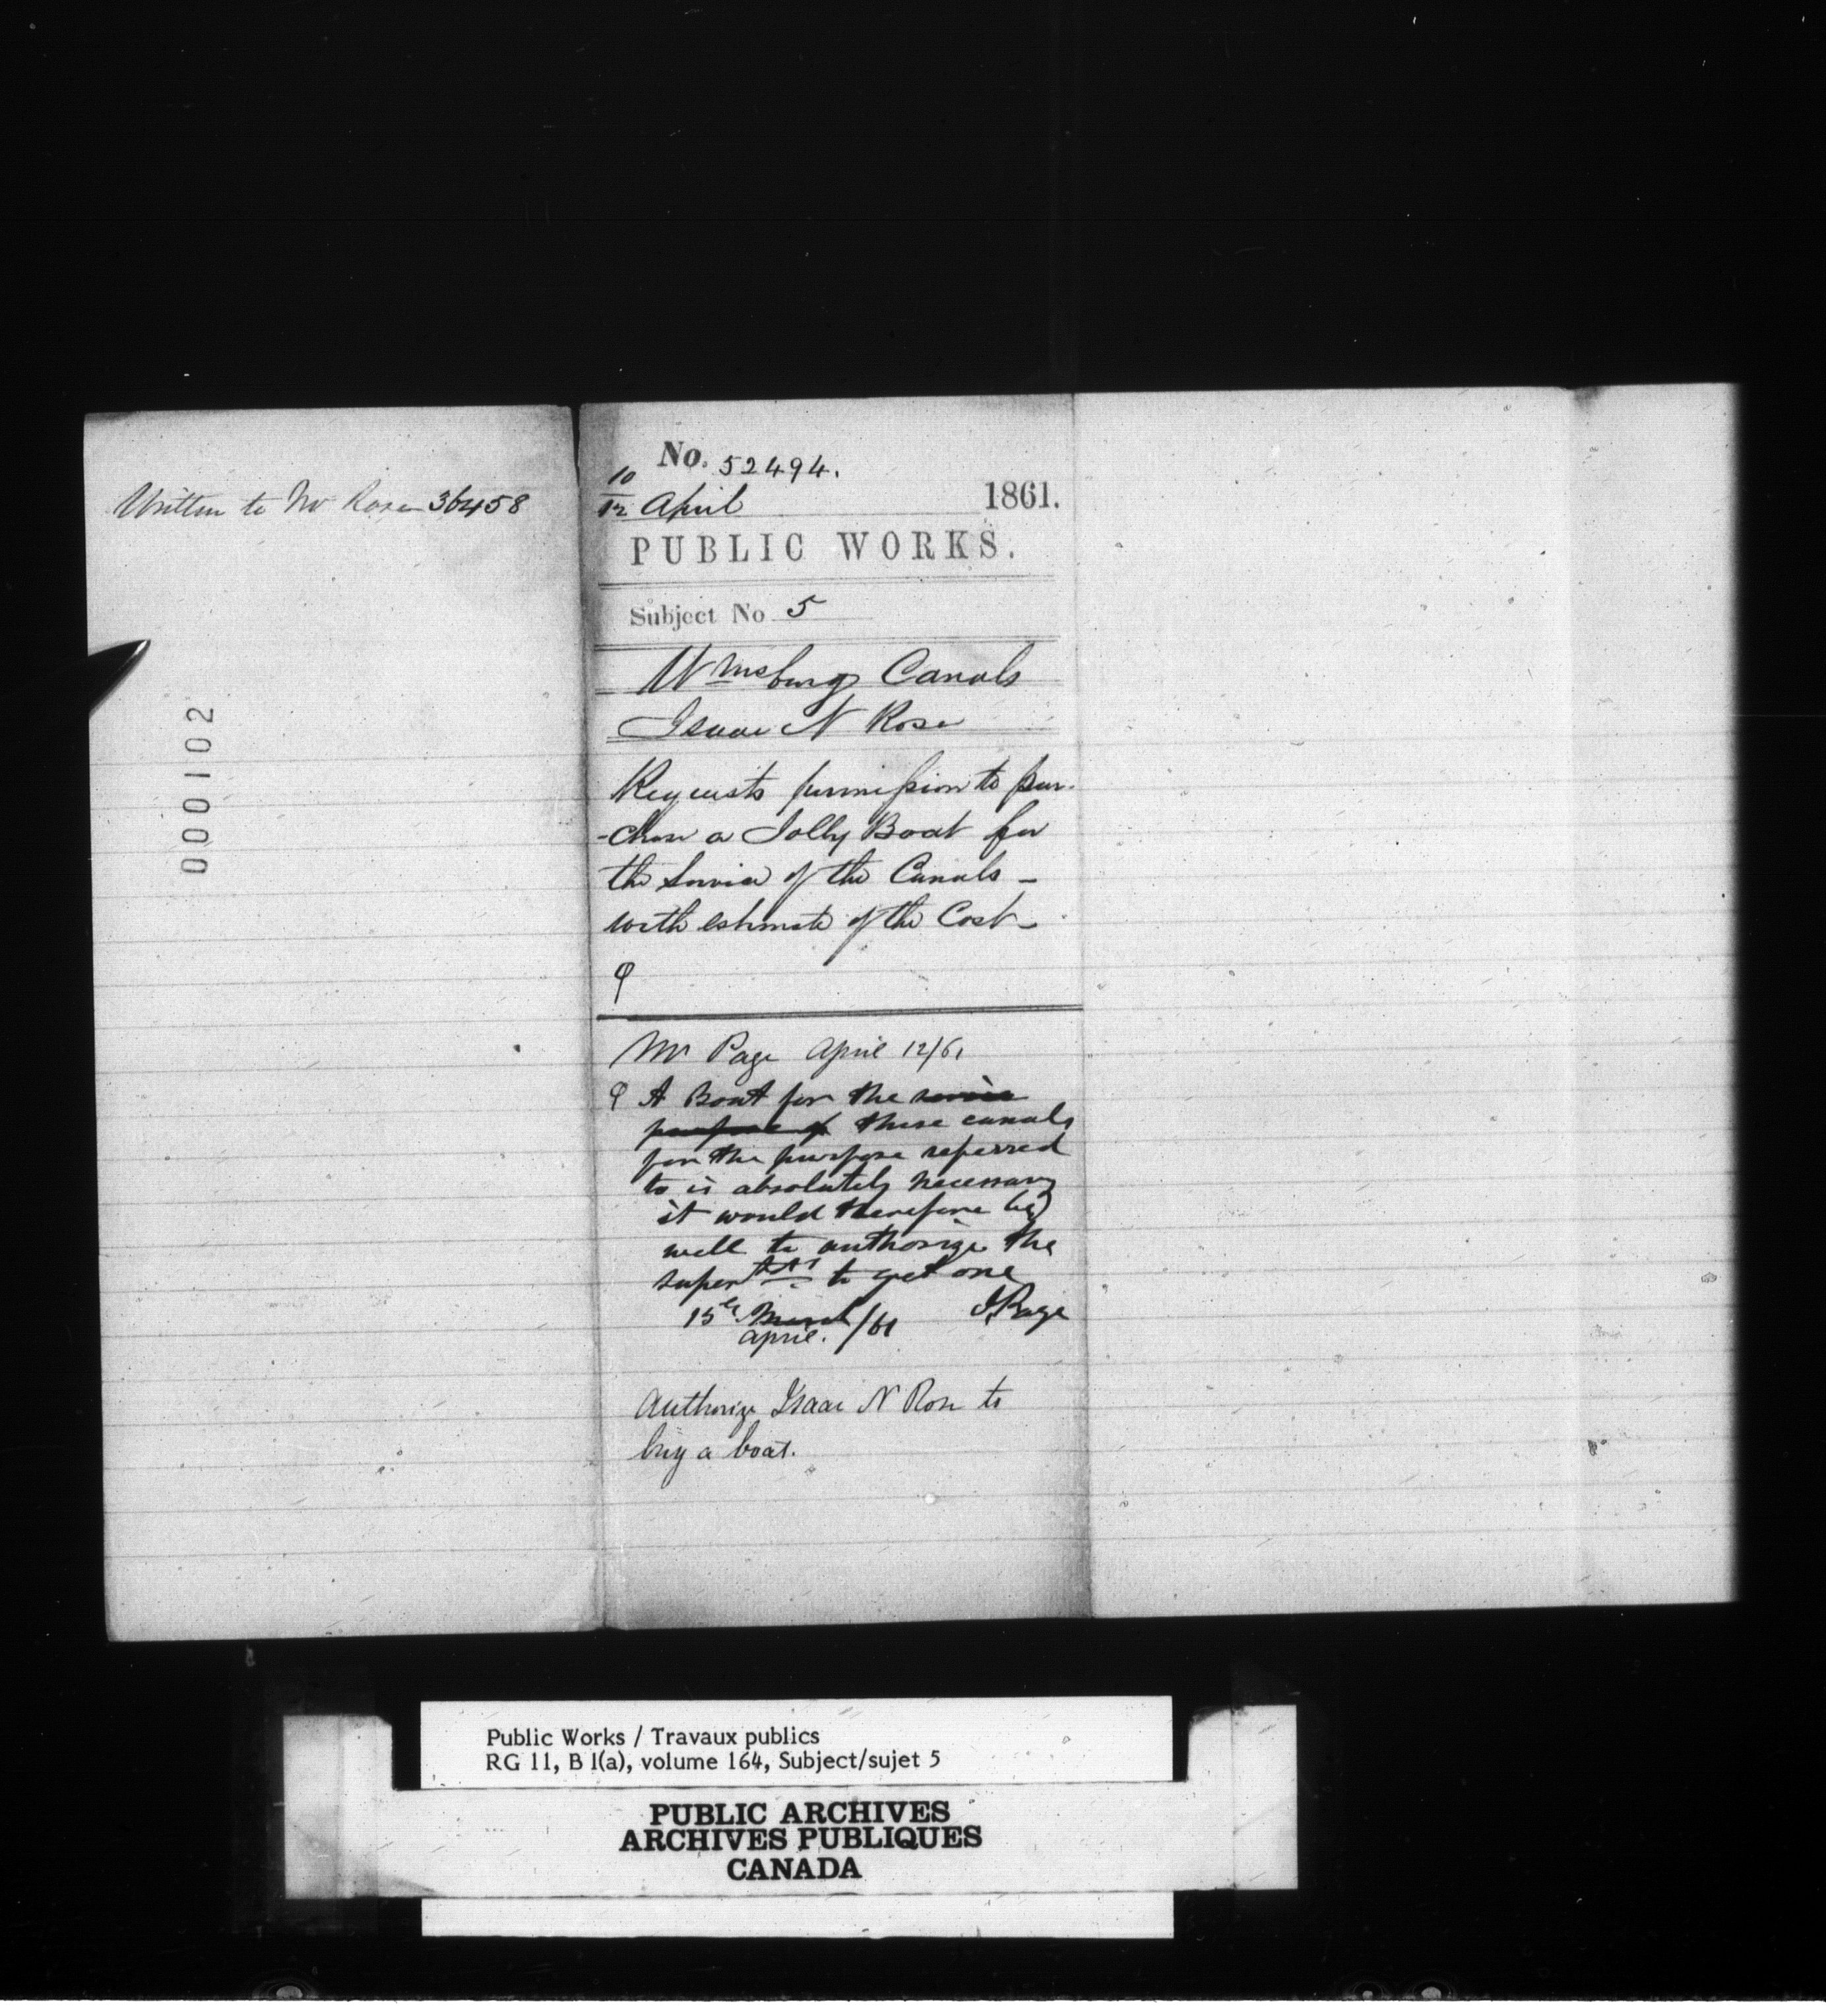 Written to Mr Rose 36458
000102
No. 52494.
10
12 April 1861.
PUBLIC WORKS.
Subject No 5
Wmsburg Canals
Isaac N Rose
Requests permission to pur-
-chase a Jolly Boat for
the Service of the Canals -
with estimate of the Cost -
Mr Page April 12/61
A Boat for the service
purpose of these canals
for the purpose referred
to is absolutely necessary
it would therefore be
well to authorize the
supertdt to get one
15th March
April. /61 J Page
Authorize Isaac N Rose to
buy a boat.
Public Works / Travaux publics
RG 11, B 1(a), volume 164, Subject/sujet 5
PUBLIC ARCHIVES
ARCHIVES PUBLIQUES
CANADA